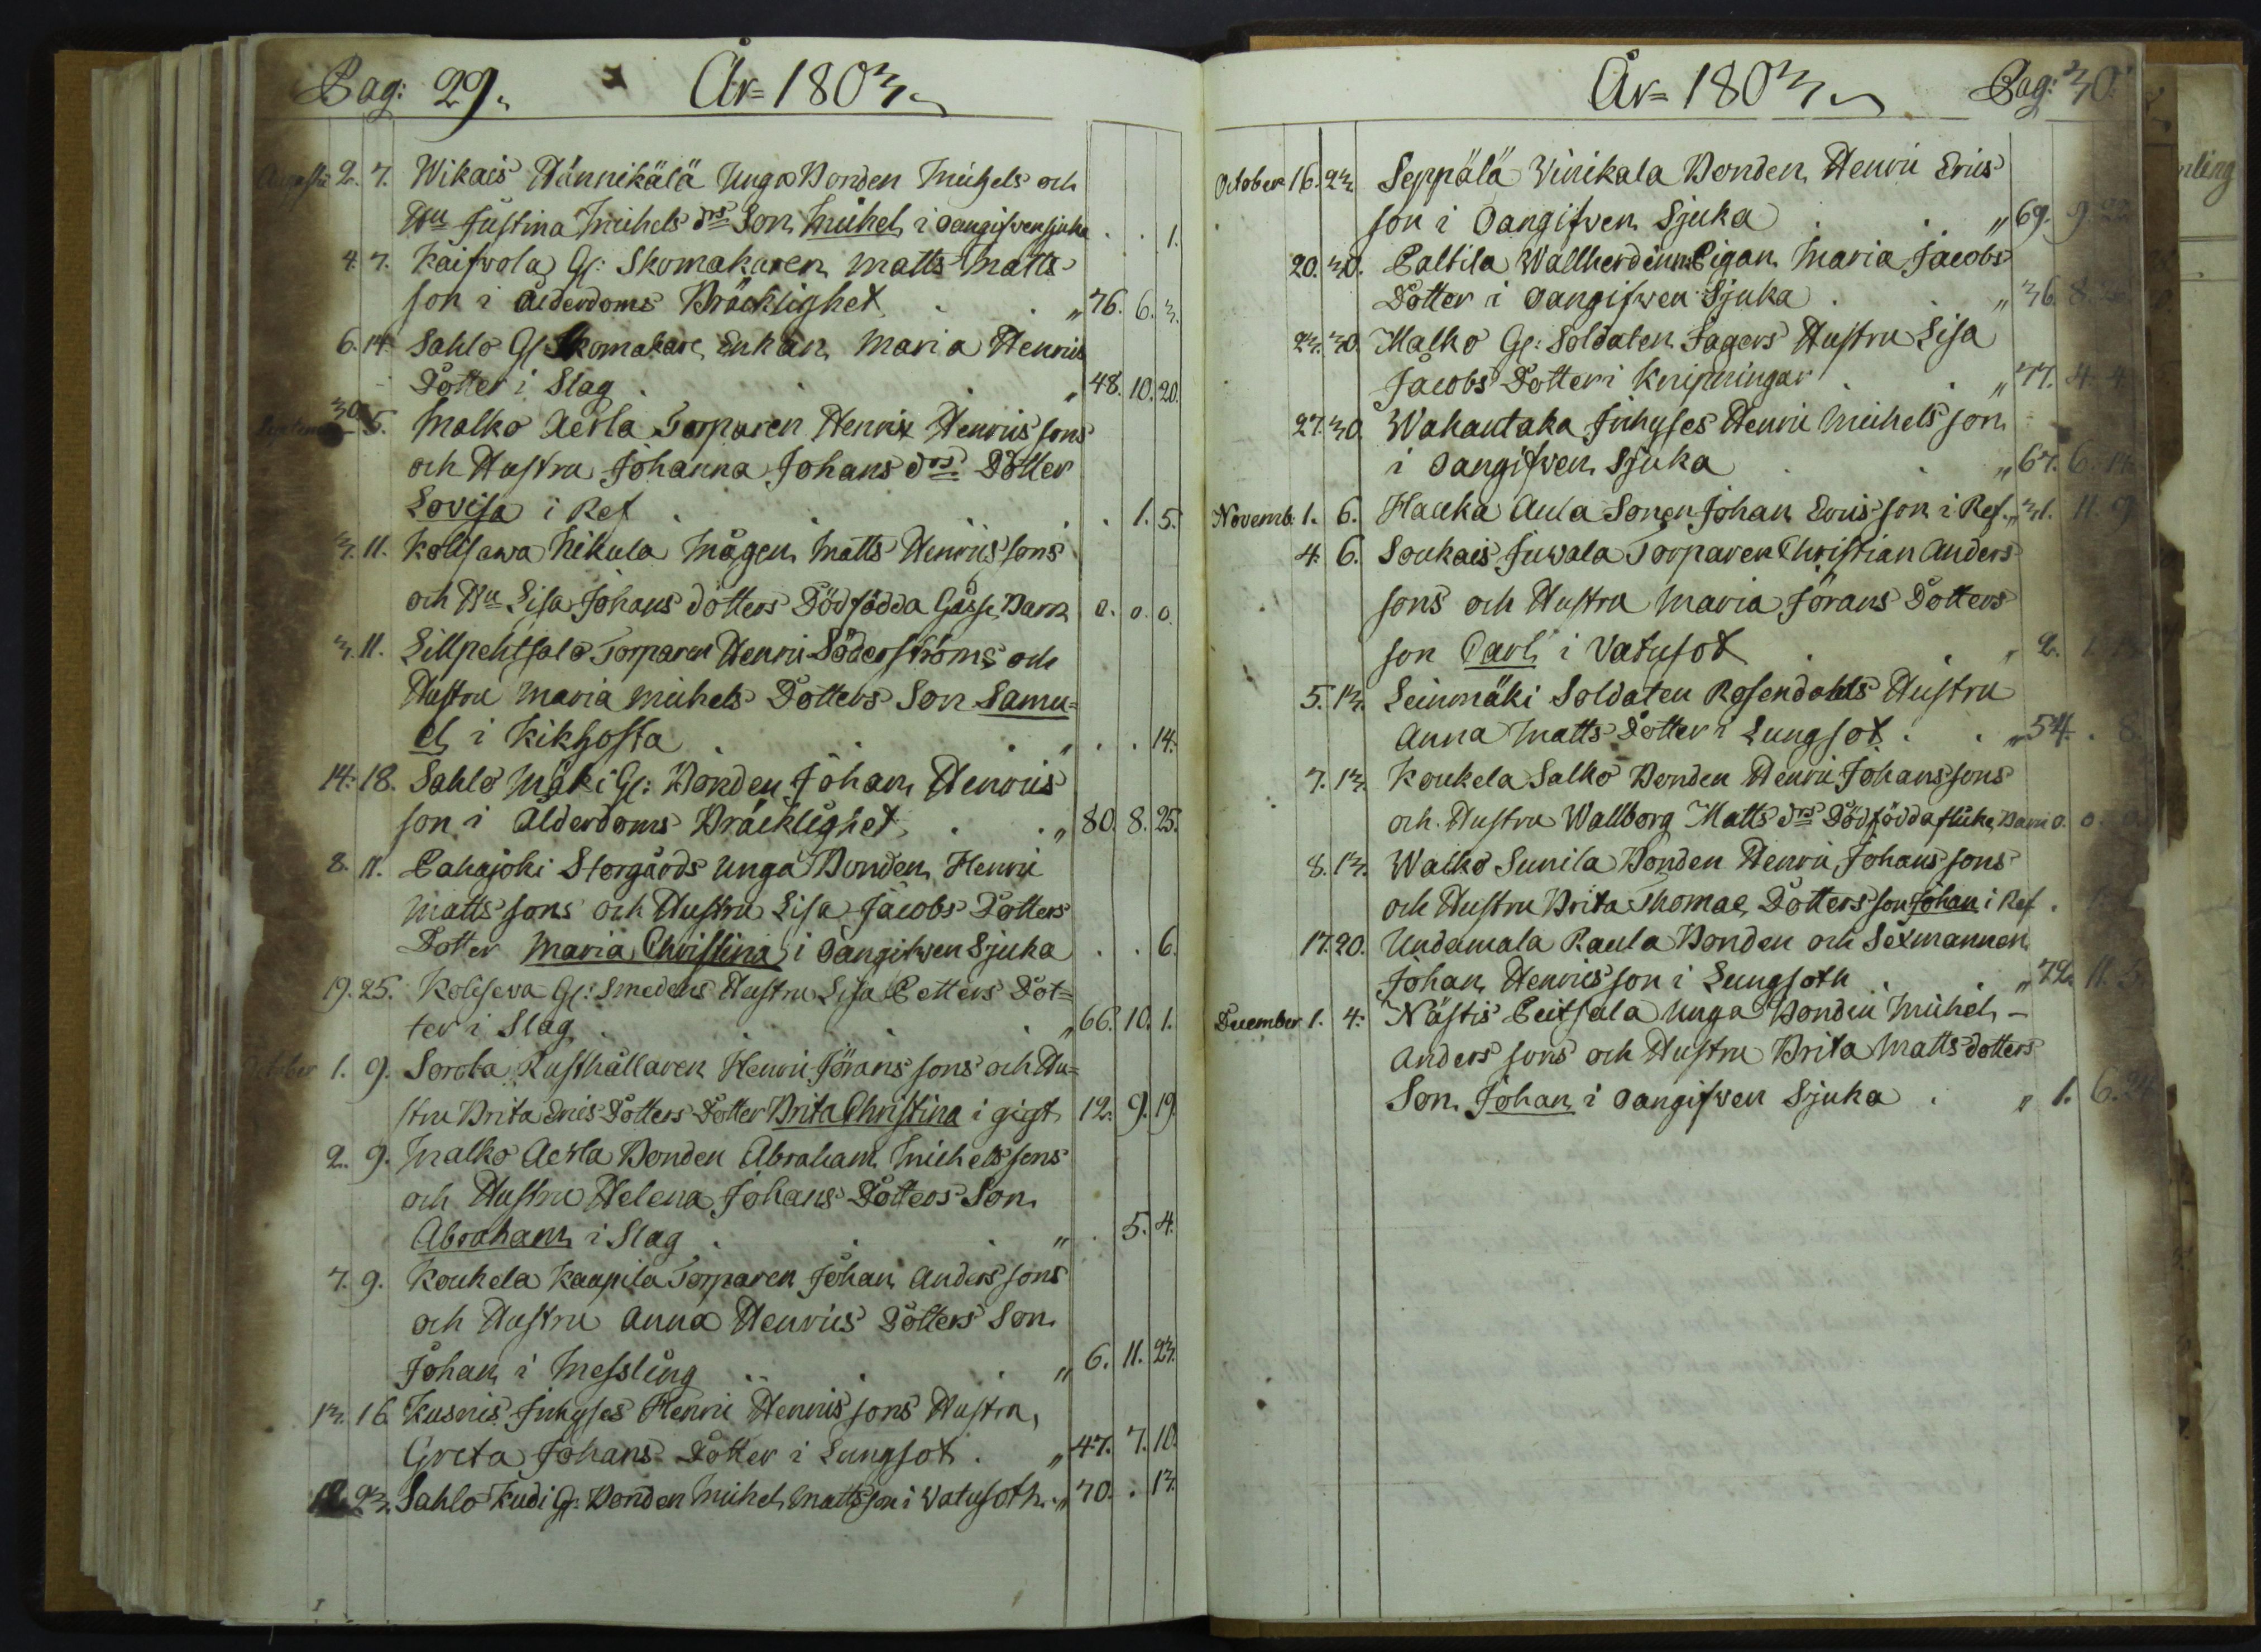 Pag: 29. År= 1803.
Augusti 2. 7. Wikais Hännikälä Unga Bonden Michels och
Hu Justina Michels drs Son Michel i oangifven sjuka . . 1.
4. 7. Kaifvola Gl: Skomakaren Matts Matts
son i ålderdoms Bräcklighet . . „ 76. 6. 3.
6. 14. Sahlo Gl Skomakare Enkan Maria Henrics
Dotter i Slag . . . „ 48. 10. 20.
30 5. Malko Aerla Torparen Henric Henrics sons
och Hustru Johanna Johans drs Dotter
Lovisa i Ref . . . . 1. 5.
3. 11. Kolisawa Nikula Mågen Matts Henrics sons
och Hu Lisa Johans dotters Dödfödda Gåsse Barn 0. 0. 0.
3. 11. Lillpehtsalo Torparen Henric Söderströms och
Hustru Maria Michels Dotters Son Samu=
el i Kikhosta . . . „ . . 14.
14. 18. Sahlo Mäki Gl: Bonden Johan Henrics
son i Ålderdoms Bräcklighet . . „ 80. 8. 25.
8. 11. Pahajoki Storgårds Unga Bonden Henric
Matts sons och Hustru Lisa Jacobs Dotters
Dotter Maria Christina i oangifwen Sjuka . . 6.
19. 25. Koliseva Gl: Smedens Hustru Lisa Petters Dot=
ter i Slag . . . „ 66. 10. 1.
October 1. 9. Sorola Rusthållaren Henric Jörans sons och Hu=
stru Brita Erics Dotters Dotter Brita Christina i gigt 12. 9. 19
2. 9. Malko Aerla Bonden Abraham Michels sons
och Hustru Helena Johans Dotters Son
Abraham i Slag . . . „ . 5. 4.
7. 9. Koukela Kaapila Torparen Johan Anders sons
och Hustru Anna Henrics Dotters Son
Johan i Messling . . . „ 6. 11. 23.
13. 16. Kusnis Inhyses Henric Henrics sons Hustru,
Greta Johans Dotter i Lungsot . „ 47. 7. 10.
18. 23. Sahlo Kudi Gl: Bonden Michel Mattsson i Vatusoth . „ 70. . 13.
År= 1803. Pag: 30.
October 16. 23. Seppälä Vinikala Bonden Henric Erics
son i oangifven Sjuka . . „ 69. 9. 22
20. 30. Paltila Wallherdinn Pigan Maria Jacobs
Dotter i oangifwen Sjuka . . „ 36. 8.
23. 30. Malko Gl: Soldaten Fagers Hustru Lisa
Jacobs Dotter i Knipningar . . „ 77. 4. 4.
27. 30. Wahantaka Inhyses Henric Michels son
i oangifven Sjuka . . „ 67. 6. 14.
Novemb. 1. 6. Haucka Aula Sonen Johan Erics son i Ref. „ 31. 11. 9
4. 6. Soukais Juwala Torparen Christian Anders
sons och Hustru Maria Jörans Dotters
son Carl i Vatusot . . „ 2. 1.
5. 13. Leinmäki Soldaten Rosendahls Hustru
Anna Matts Dotter i Lungsot . . „ 54. . 8.
7. 13. Koukela Salko Bonden Henric Johanssons
och Hustru Wallborg Matts drs Dödfödda flicke Barn 0. 0. 0.
8. 13. Walko Sunila Bonden Henric Johans sons
och Hustru Brita Thomae Dotters son Johan i Ref .
17. 20. Undamala Raula Bonden och Sexmannen
Johan Henrics son i Lungsoth . . „ 72. 11. 5.
December 1. 4. Nästis Peitsala Unga Bonden Michel -
Anders sons och Hustru Brita Matts dotters
Son Johan i oangifven Sjuka . „ 1. 6. 24